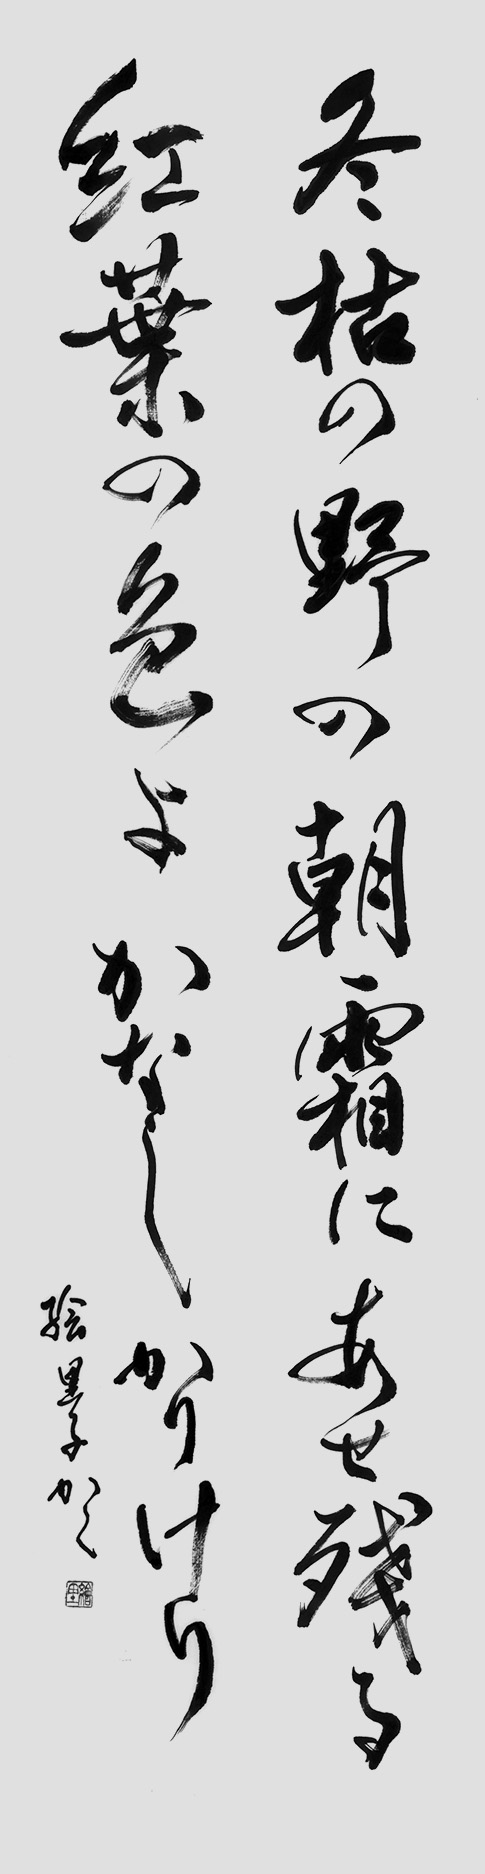 冬枯の野の朝霜にあせ残る
紅葉の色よかなしかりけり
絵里子かく